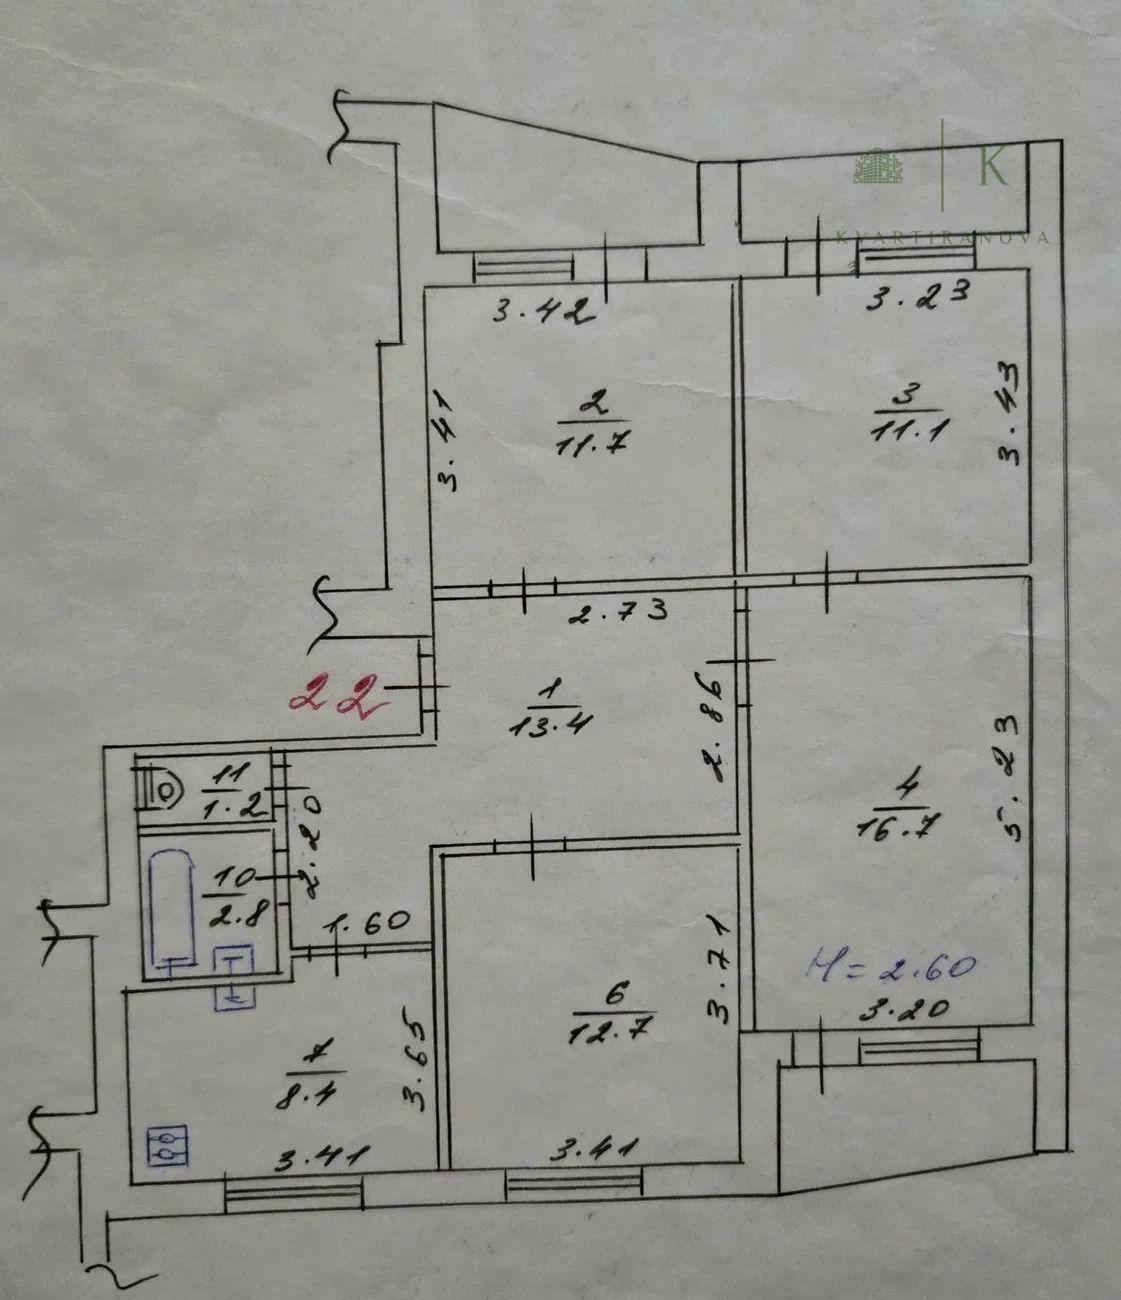 K
KVARTIRANOVA
3.42
3.23
3.41
2
11.7
3
11.1
3.43
2.73
22
1
13.4
2.86
4
16.7
5.23
11
1.2
2.20
10
2.8
1.60
3.71
H=2.60
3.20
6
12.7
7
8.4
3.65
3.41
3.41